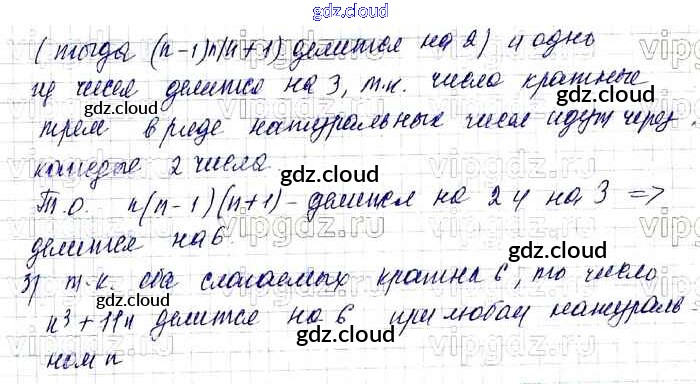 gdz.cloud
(тогда (n-1)n(n+1) делится на 2) и одно
из чисел делится на 3, т.к. числа кратные
gdz.cloud gdz.cloud
трем в ряде натуральных чисел идут через
каждые 2 числа.
gdz.cloud
Т.о. n(n-1)(n+1) - делится на 2 и на 3 =>
gdz.cloud gdz.cloud
делится на 6.
3) т.к. оба слагаемых кратны 6, то число
gdz.cloud
n³+11n делится на 6 при любом натураль-
gdz.cloud gdz.cloud
ном n